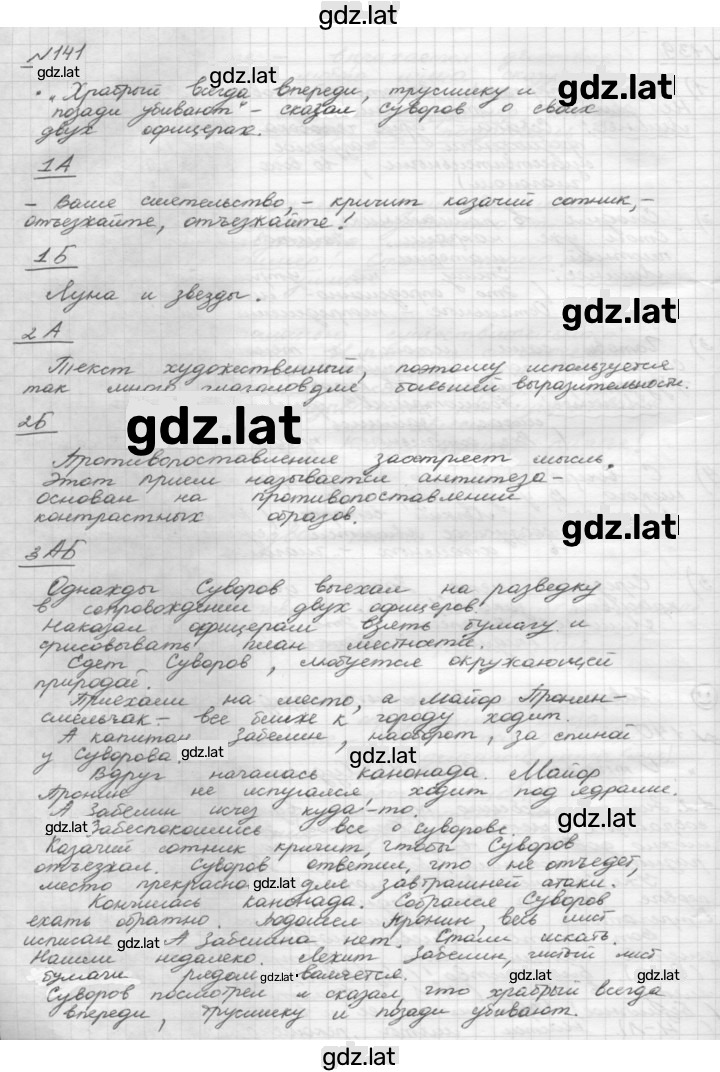 gdz.lat
№141
gdz.lat
• „Храбрый всегда впереди, трусишку и gdz.lat
позади убивают" – сказал Суворов о своих
двух офицерах.
1А
– Ваше сиятельство, – кричит казачий сотник, –
отъезжайте, отъезжайте!
1Б
Луна и звезды.
gdz.lat
2А
Текст художественный, поэтому используется
так много глаголов для большей выразительности.
gdz.lat
2Б
Противопоставление заостряет мысль.
Этот прием называется антитеза –
основан на противопоставлении
контрастных образов.
gdz.lat
3АБ
Однажды Суворов выехал на разведку
в сопровождении двух офицеров
Наказал офицерам взять бумагу и
срисовывать план местности.
Едет Суворов, любуется окружающей
природой.
Приехали на место, а Майор Пронин –
смельчак – все ближе к городу ходит.
А капитан Забелин, наоборот, за спиной
у Суворова. gdz.lat
gdz.lat
Вдруг началась канонада. Майор
Пронин не испугался ходит под ядрами.
А Забелин исчез куда-то.
gdz.lat Забеспокоились все о Суворове. gdz.lat
Казачий сотник кричит, чтобы Суворов
отъезхал. Суворов ответил, что не отъедет,
место прекрасно gdz.lat для завтрашней атаки.
Кончилась канонада. Собрался Суворов
ехать обратно. Подошел Пронин, весь лист
исписан gdz.lat А Забелина нет. Стали искать.
Нашли недалеко. Лежит Забелин, чистый лист
бумаги рядом gdz.lat валяется. gdz.lat gdz.lat
Суворов посмотрел и сказал, что храбрый всегда
впереди, трусишку и позади убивают.
gdz.lat